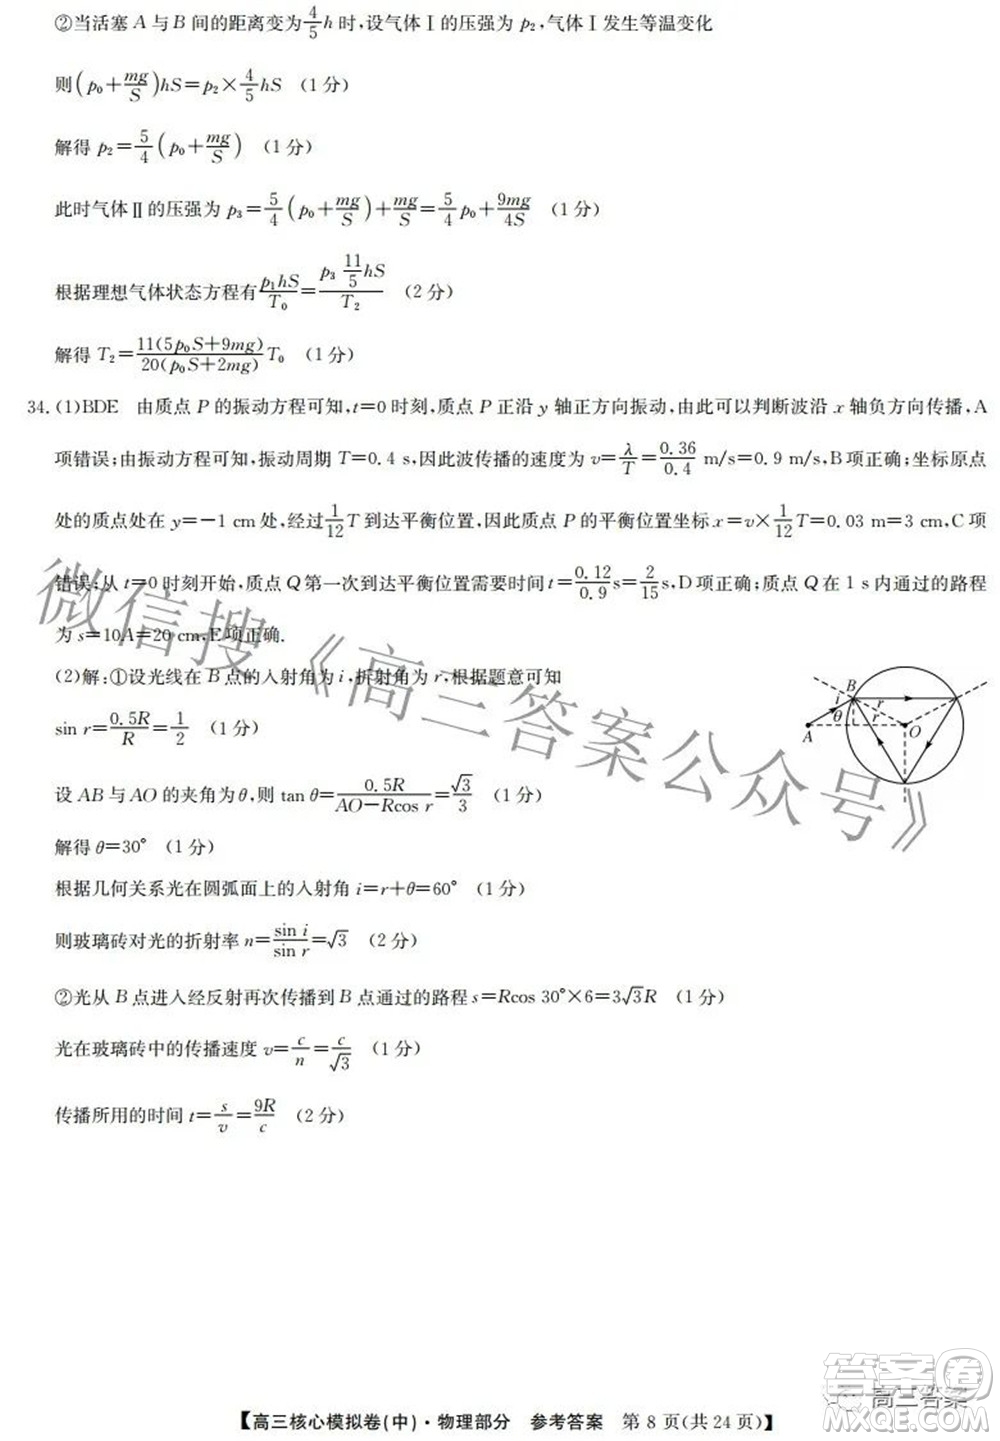 ②当活塞 A 与 B 间的距离变为 4/5 h 时,设气体Ⅰ的压强为 p₂,气体Ⅰ发生等温变化
则(p₀+mg/S)hS=p₂×4/5 hS (1 分)
解得 p₂=5/4(p₀+mg/S) (1 分)
此时气体Ⅱ的压强为 p₃=5/4(p₀+mg/S)+mg/S=5/4 p₀+9mg/4S (1 分)
根据理想气体状态方程有 p₁hS/T₀=p₃ 11/5 hS/T₂ (2 分)
解得 T₂=11(5p₀S+9mg)/20(p₀S+2mg) T₀ (1 分)
34.(1)BDE 由质点 P 的振动方程可知,t=0 时刻,质点 P 正沿 y 轴正方向振动,由此可以判断波沿 x 轴负方向传播,A
项错误;由振动方程可知,振动周期 T=0.4 s,因此波传播的速度为 v=λ/T=0.36/0.4 m/s=0.9 m/s,B项正确;坐标原点
处的质点处在 y=-1 cm 处,经过 1/12 T 到达平衡位置,因此质点 P 的平衡位置坐标 x=v×1/12 T=0.03 m=3 cm,C 项
错误;从 t=0 时刻开始,质点 Q 第一次到达平衡位置需要时间 t=0.12/0.9 s=2/15 s,D 项正确;质点 Q 在 1 s 内通过的路程
为 s=10A=20 cm,E项正确.
(2)解:①设光线在 B 点的入射角为 i,折射角为 r,根据题意可知
sin r=0.5R/R=1/2 (1 分)
设 AB 与 AO 的夹角为 θ,则 tan θ=0.5R/(AO-Rcos r)=√3/3 (1 分)
解得 θ=30° (1 分)
根据几何关系光在圆弧面上的入射角 i=r+θ=60° (1 分)
则玻璃砖对光的折射率 n=sin i/sin r=√3 (2 分)
②光从 B 点进入经反射再次传播到 B 点通过的路程 s=Rcos 30°×6=3√3R (1 分)
光在玻璃砖中的传播速度 v=c/n=c/√3 (1 分)
传播所用的时间 t=s/v=9R/c (2 分)
B
i
r
θ
r
A
O
微信搜《高三答案公众号》
答案圈
高三答案
MXQE.COM
【高三核心模拟卷(中)·物理部分 参考答案 第 8 页(共 24 页)】